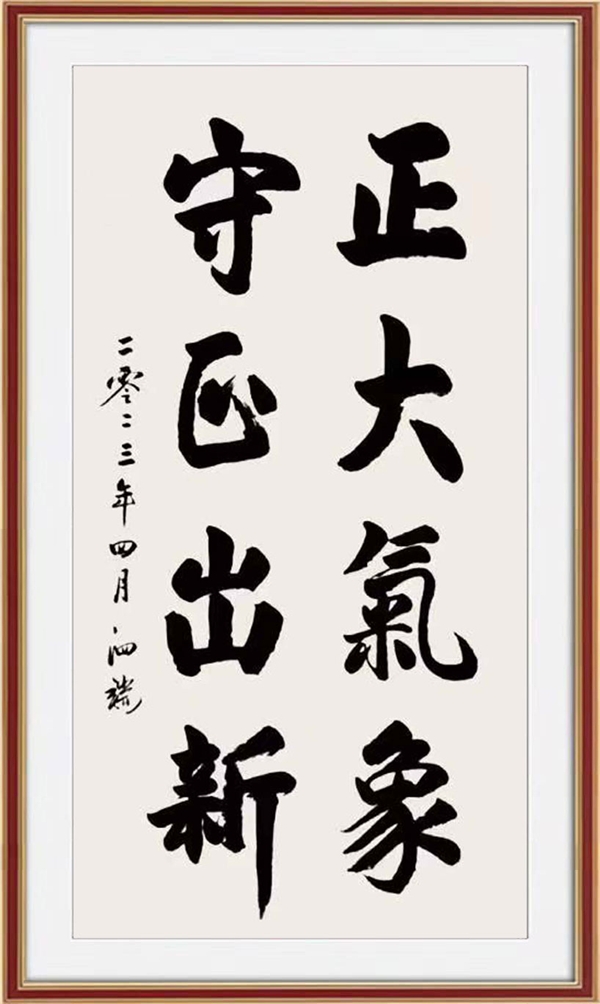 正大氣象
守正出新
二零二三年四月 泗瑞